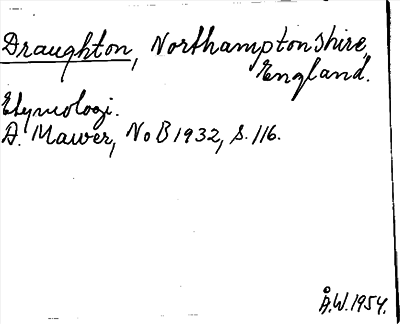 Draughton, Northamptonshire,
England.
Etymologi.
A. Mawer, NoB 1932, s. 116.
Å.W. 1954.